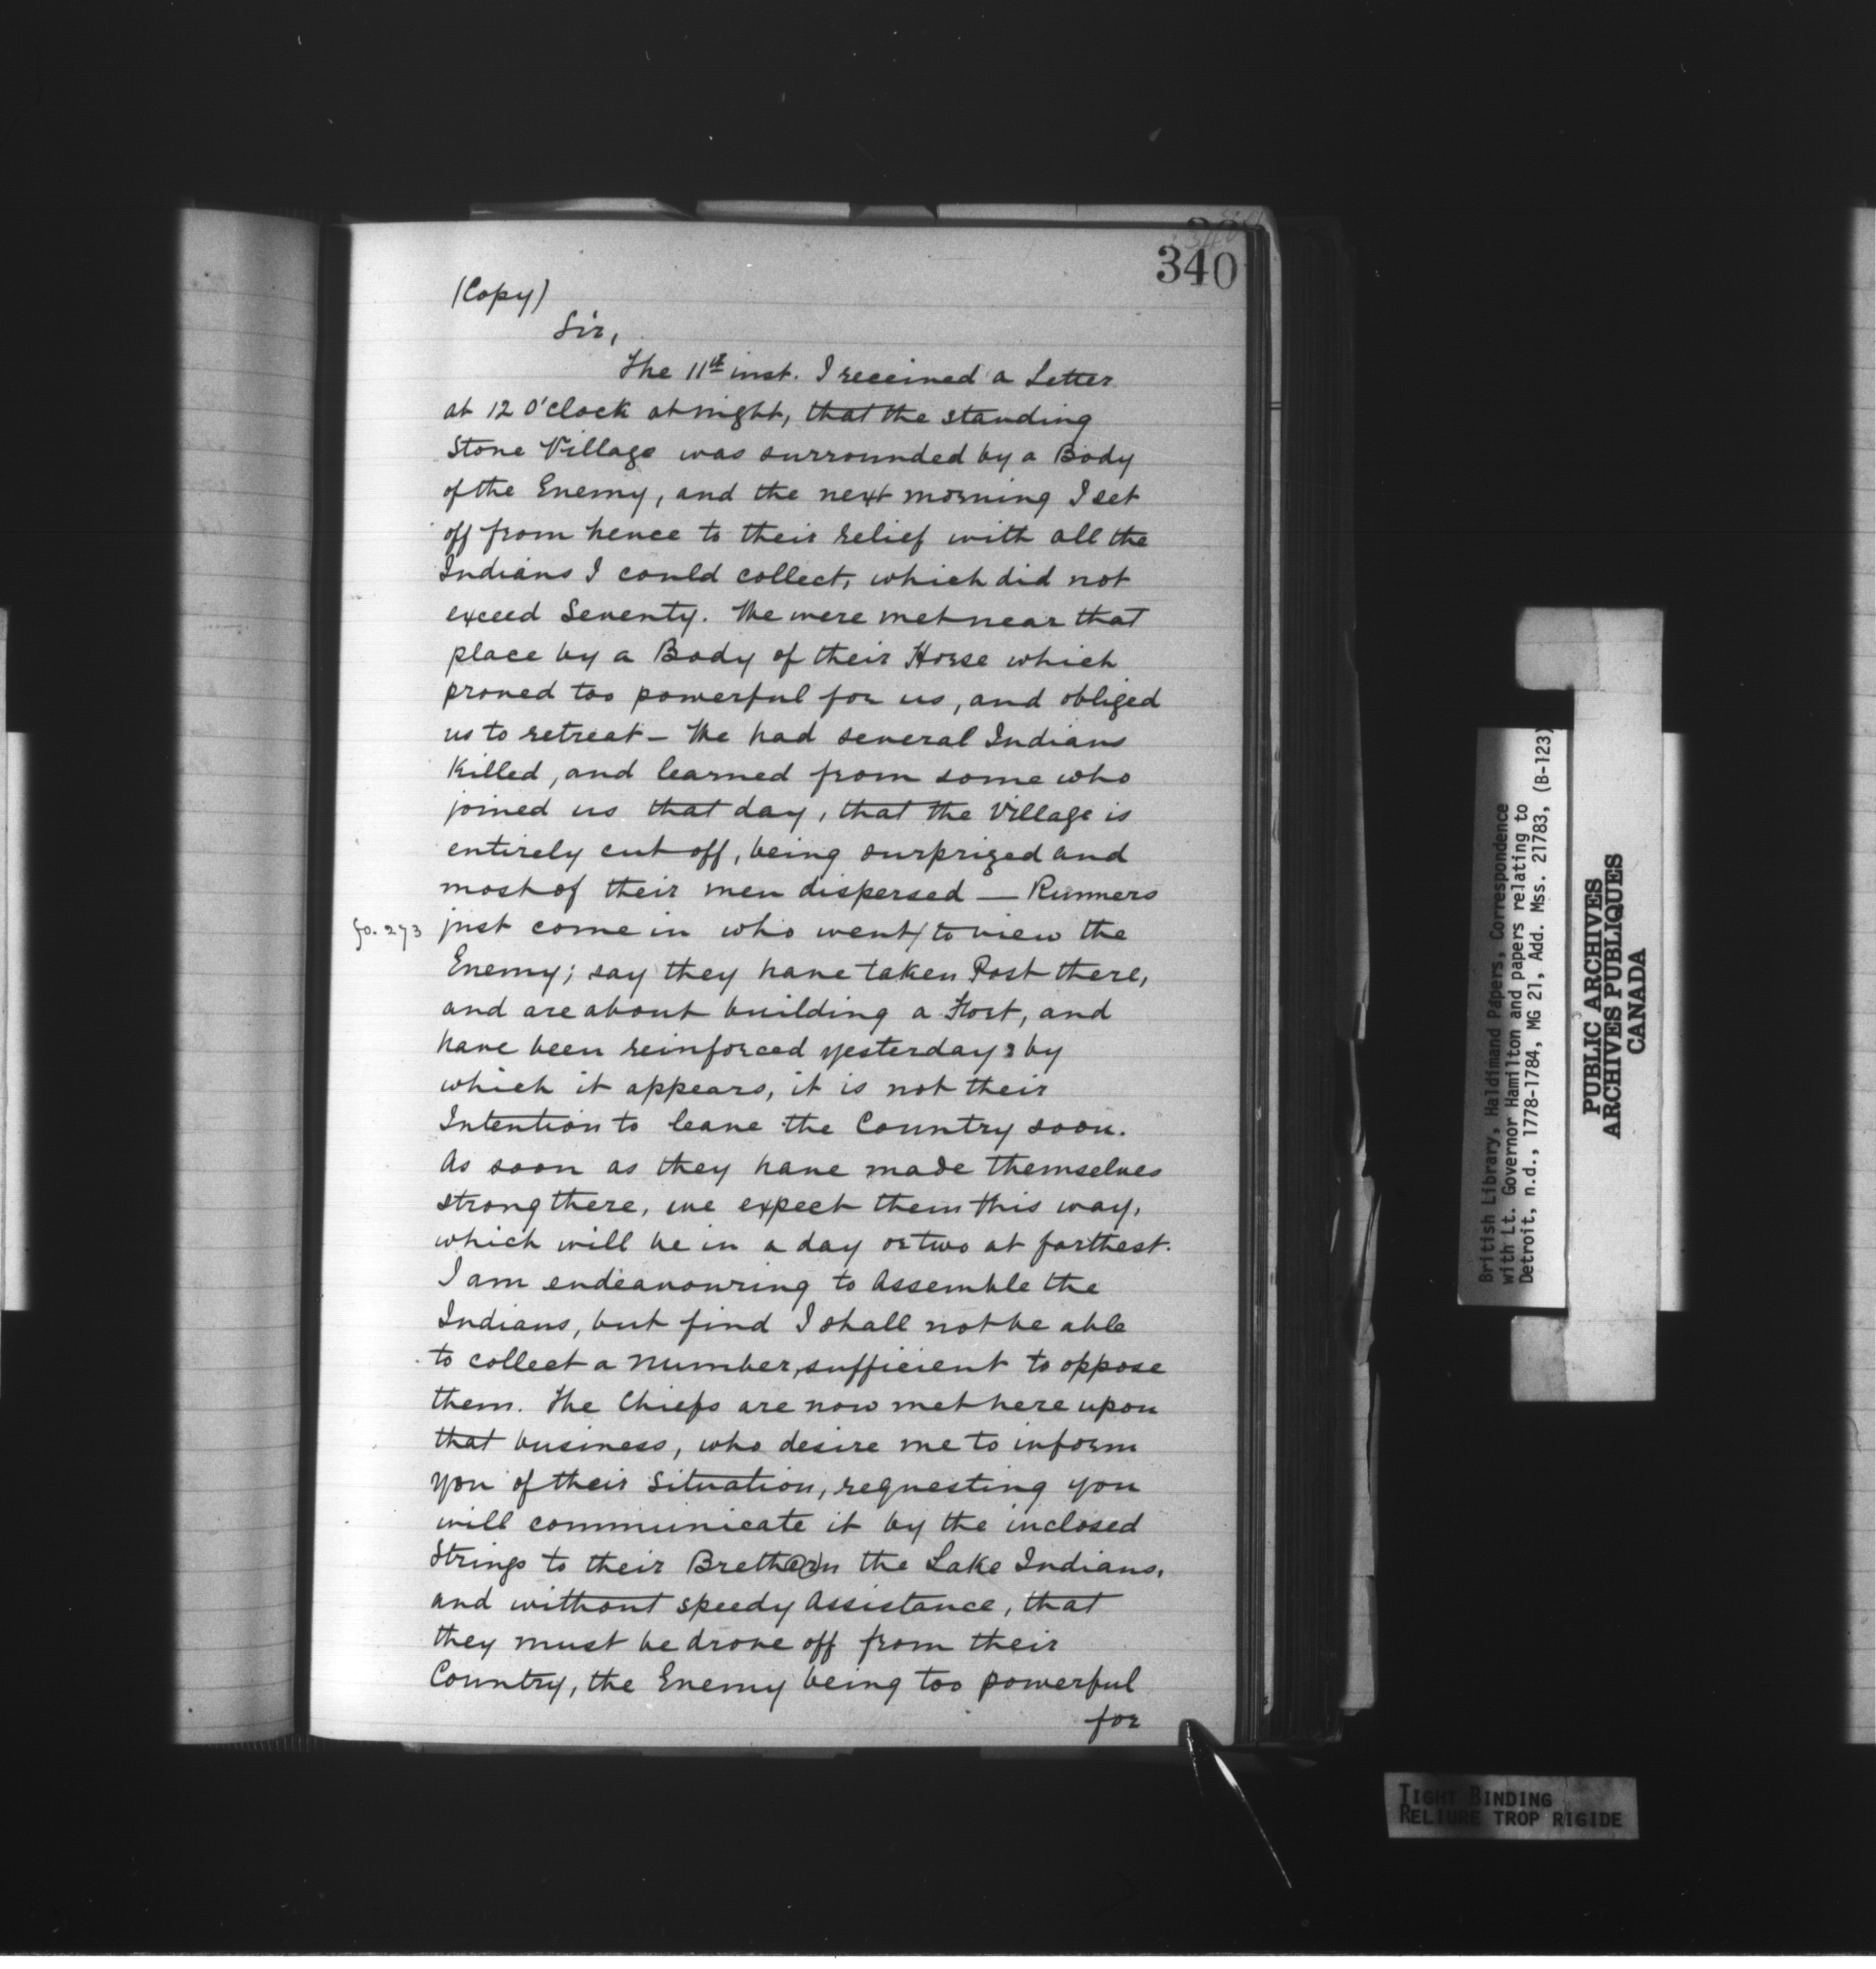 340
(Copy)
Sir,
The 11th inst. I received a Letter
at 12 O'clock at night, that the standing
Stone Village was surrounded by a Body
of the Enemy, and the next morning I set
off from hence to their relief with all the
Indians I could collect, which did not
exceed Seventy. We were met near that
place by a Body of their Horse which
proved too powerful for us, and obliged
us to retreat — We had several Indians
killed, and learned from some who
joined us that day, that the Village is
entirely cut off, being surprized and
most of their men dispersed — Runners
fo. 273 just come in who went/to view the
Enemy; say they have taken Post there,
and are about building a Fort, and
have been reinforced yesterday; by
which it appears, it is not their
Intention to leave the Country soon.
As soon as they have made themselves
strong there, we expect them this way,
which will be in a day or two at farthest.
I am endeavouring to Assemble the
Indians, but find I shall not be able
to collect a number, sufficient to oppose
them. The Chiefs are now met here upon
that business, who desire me to inform
you of their situation, requesting you
will communicate it by the inclosed
Strings to their Breth(er)n the Lake Indians,
and without speedy Assistance, that
they must be drove off from their
Country, the Enemy being too powerful
for
British Library, Haldimand Papers, Correspondence
with Lt. Governor Hamilton and papers relating to
Detroit, n.d., 1778-1784, MG 21, Add. Mss. 21783, (B-123)
PUBLIC ARCHIVES
ARCHIVES PUBLIQUES
CANADA
TIGHT BINDING
RELIURE TROP RIGIDE